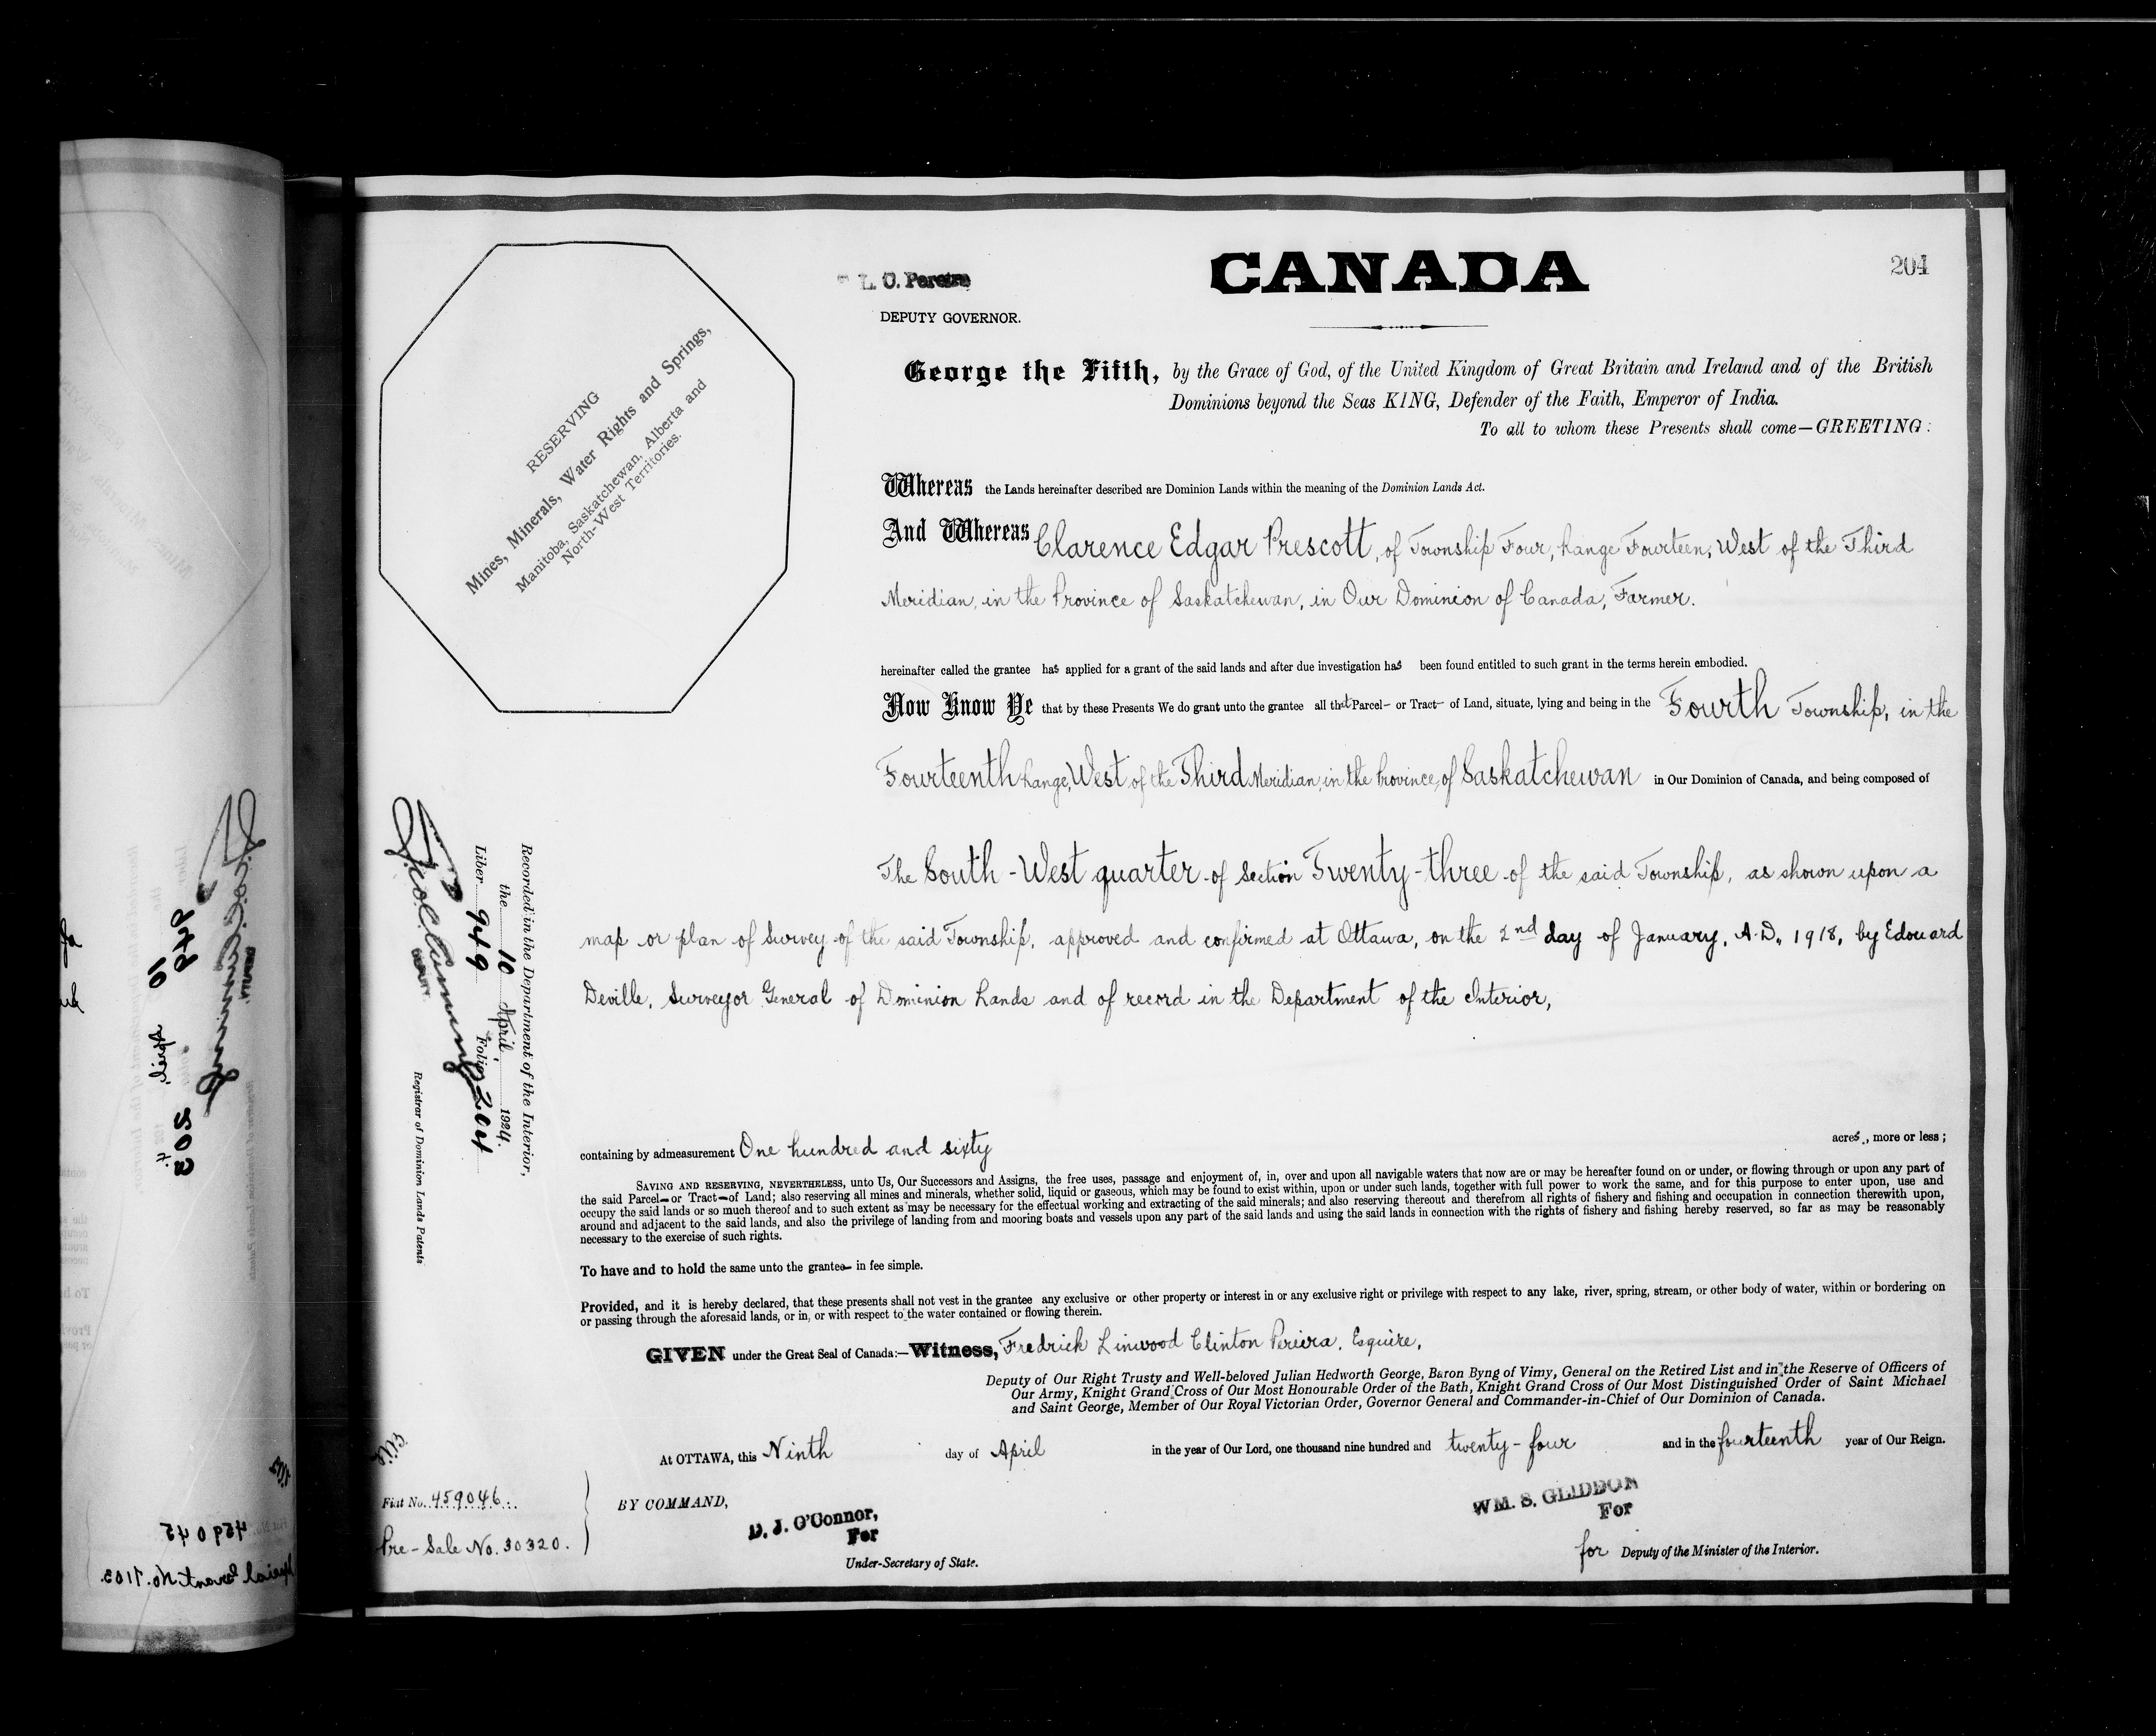 204
L. C. Pereira
DEPUTY GOVERNOR.
CANADA
RESERVING
Mines, Minerals, Water Rights and Springs,
Manitoba, Saskatchewan, Alberta and
North-West Territories.
George the Fifth, by the Grace of God, of the United Kingdom of Great Britain and Ireland and of the British
Dominions beyond the Seas KING, Defender of the Faith, Emperor of India.
To all to whom these Presents shall come—GREETING:
Whereas the Lands hereinafter described are Dominion Lands within the meaning of the Dominion Lands Act.
And Whereas Clarence Edgar Prescott, of Township Four, Range Fourteen, West of the Third
Meridian, in the Province of Saskatchewan, in Our Dominion of Canada, Farmer.
hereinafter called the grantee has applied for a grant of the said lands and after due investigation has been found entitled to such grant in the terms herein embodied.
Now Know Ye that by these Presents We do grant unto the grantee all that Parcel— or Tract— of Land, situate, lying and being in the Fourth Township, in the
Fourteenth Range, West of the Third Meridian, in the Province of Saskatchewan in Our Dominion of Canada, and being composed of
The South-West quarter of Section Twenty-three of the said Township, as shown upon a
map or plan of Survey of the said Township, approved and confirmed at Ottawa, on the 2nd day of January, A.D. 1918, by Edouard
Deville, Surveyor General of Dominion Lands and of record in the Department of the Interior,
containing by admeasurement One hundred and sixty acres, more or less;
SAVING AND RESERVING, NEVERTHELESS, unto Us, Our Successors and Assigns, the free uses, passage and enjoyment of, in, over and upon all navigable waters that now are or may be hereafter found on or under, or flowing through or upon any part of
the said Parcel— or Tract— of Land; also reserving all mines and minerals, whether solid, liquid or gaseous, which may be found to exist within, upon or under such lands, together with full power to work the same, and for this purpose to enter upon, use and
occupy the said lands or so much thereof and to such extent as may be necessary for the effectual working and extracting of the said minerals; and also reserving thereout and therefrom all rights of fishery and fishing and occupation in connection therewith upon,
around and adjacent to the said lands, and also the privilege of landing from and mooring boats and vessels upon any part of the said lands and using the said lands in connection with the rights of fishery and fishing hereby reserved, so far as may be reasonably
necessary to the exercise of such rights.
To have and to hold the same unto the grantee— in fee simple.
Provided, and it is hereby declared, that these presents shall not vest in the grantee any exclusive or other property or interest in or any exclusive right or privilege with respect to any lake, river, spring, stream, or other body of water, within or bordering on
or passing through the aforesaid lands, or in, or with respect to the water contained or flowing therein.
GIVEN under the Great Seal of Canada:—Witness, Fredrick Linwood Clinton Pereira, Esquire,
Deputy of Our Right Trusty and Well-beloved Julian Hedworth George, Baron Byng of Vimy, General on the Retired List and in the Reserve of Officers of
Our Army, Knight Grand Cross of Our Most Honourable Order of the Bath, Knight Grand Cross of Our Most Distinguished Order of Saint Michael
and Saint George, Member of Our Royal Victorian Order, Governor General and Commander-in-Chief of Our Dominion of Canada.
At OTTAWA, this Ninth day of April in the year of Our Lord, one thousand nine hundred and twenty-four and in the fourteenth year of Our Reign.
BY COMMAND,
D. J. O'Connor,
For
Under-Secretary of State.
WM. S. GLIDDON
For
for Deputy of the Minister of the Interior.
Fiat No. 459046
Pre-Sale No. 30320.
Recorded in the Department of the Interior,
the 10 April 1924.
Liber 949 Folio 204
DEPUTY
Registrar of Dominion Lands Patents
949
10 April
203
459045
Special Grant No. 1103.